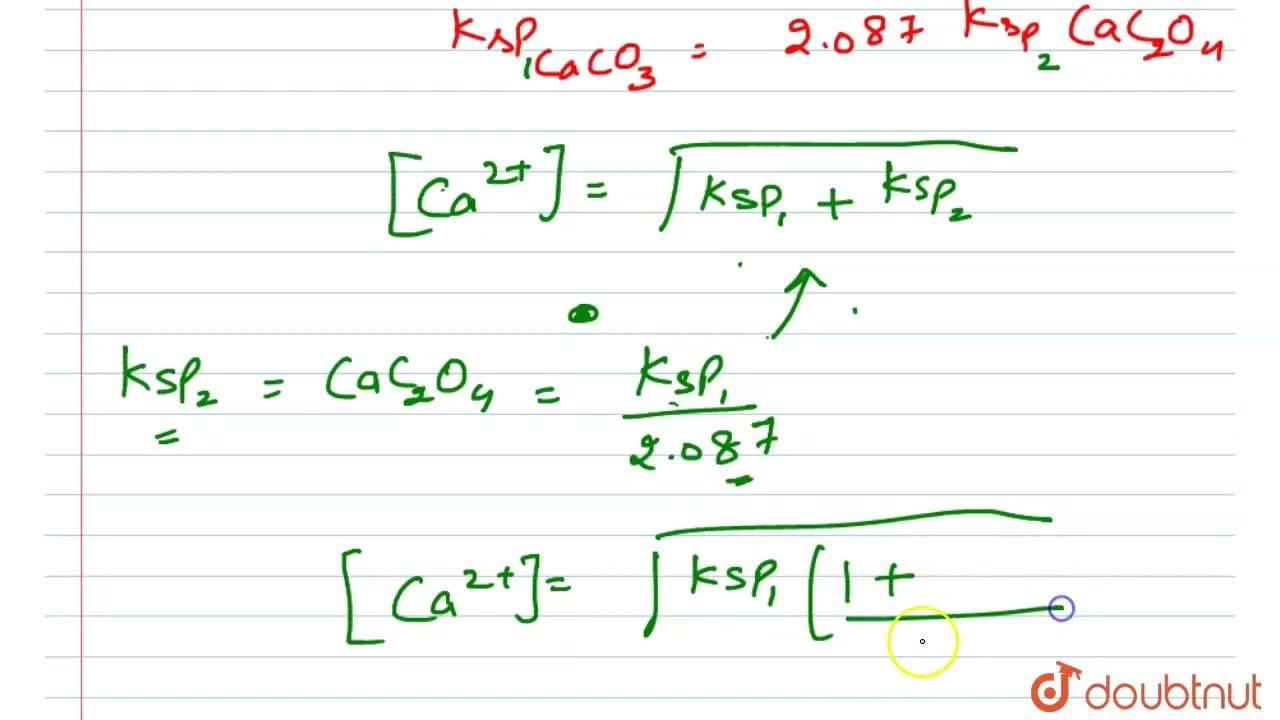 Ksp₁ CaCO₃ = 2.087 Ksp₂ CaC₂O₄
[Ca²⁺] = √Ksp₁ + Ksp₂
Ksp₂ = CaC₂O₄ = Ksp₁
2.087
[Ca²⁺] = √Ksp₁ (1 +
doubtnut